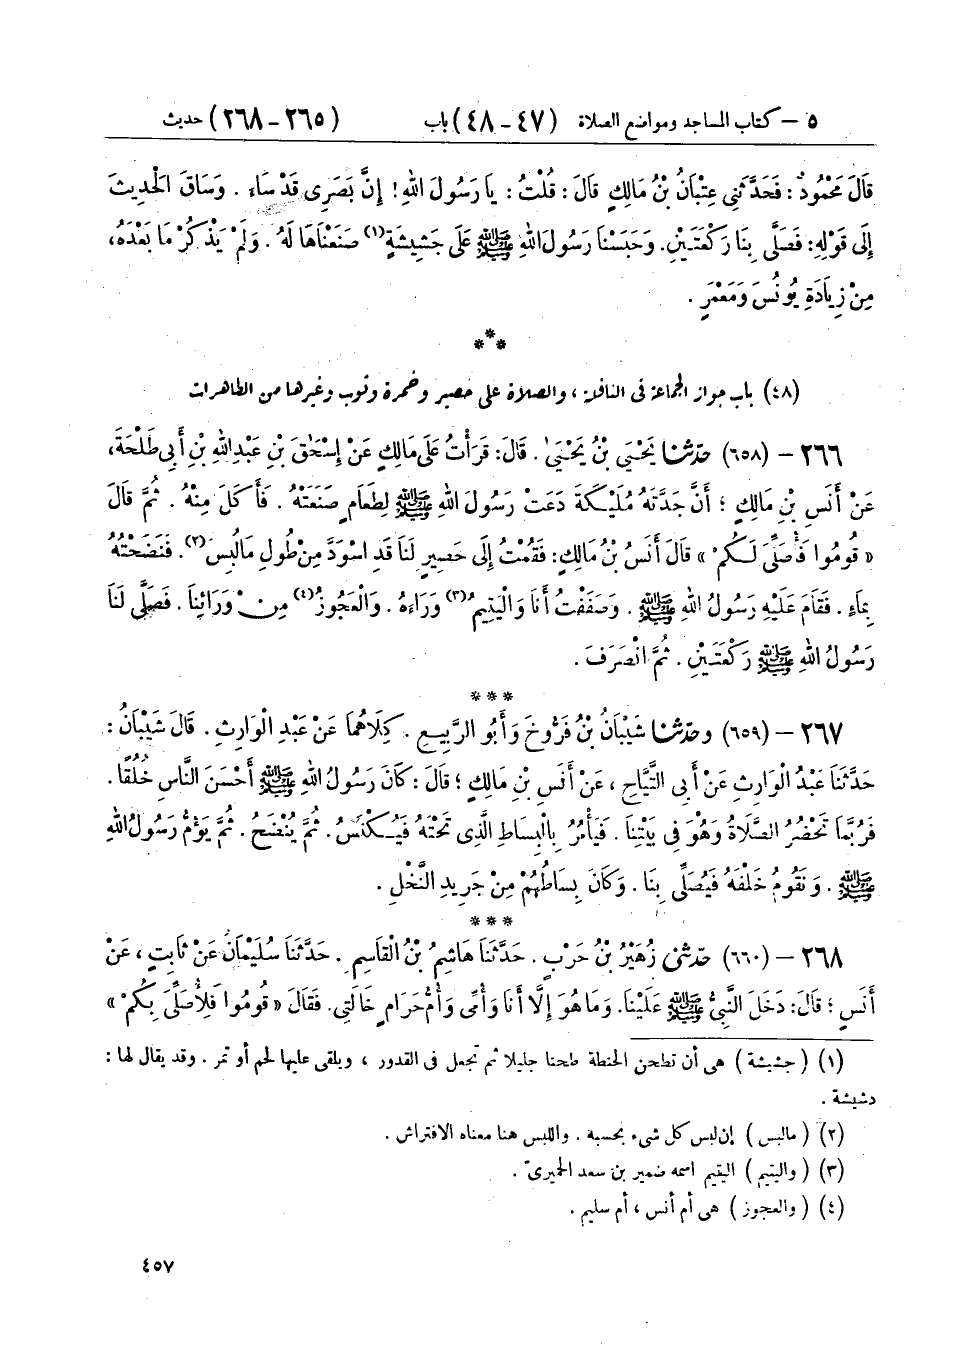 ٥ – كتاب المساجد ومواضع الصلاة (٤٧ – ٤٨) باب (٢٦٥ – ٢٦٨) حديث
قَالَ مَحْمُودٌ: فَحَدَّثَنِى عِتْبَانُ بْنُ مَالِكٍ قَالَ: قُلْتُ: يَا رَسُولَ اللهِ! إِنَّ بَصَرِى قَدْ سَاءَ. وَسَاقَ الْحَدِيثَ
إِلَى قَوْلِهِ: فَصَلَّى بِنَا رَكْعَتَيْنِ. وَحَبَسْنَا رَسُولَ اللهِ ﷺ عَلَى جَشِيشَةٍ(١) صَنَعْنَاهَا لَهُ. وَلَمْ يَذْكُرْ مَا بَعْدَهُ،
مِنْ زِيَادَةِ يُونُسَ وَمَعْمَرٍ.
***
(٤٨) باب جواز الجماعة فى النافلة، والصلاة على حصير وخمرة وثوب وغيرها من الطاهرات
٢٦٦ – (٦٥٨) حَدَّثَنَا يَحْيَى بْنُ يَحْيَىٰ. قَالَ: قَرَأْتُ عَلَى مَالِكٍ عَنْ إِسْحَقَ بْنِ عَبْدِ اللهِ بْنِ أَبِى طَلْحَةَ،
عَنْ أَنَسِ بْنِ مَالِكٍ؛ أَنَّ جَدَّتَهُ مُلَيْكَةَ دَعَتْ رَسُولَ اللهِ ﷺ لِطَعَامٍ صَنَعَتْهُ. فَأَكَلَ مِنْهُ. ثُمَّ قَالَ
« قُومُوا فَأُصَلِّىَ لَكُمْ » قَالَ أَنَسُ بْنُ مَالِكٍ: فَقُمْتُ إِلَى حَصِيرٍ لَنَا قَدِ اسْوَدَّ مِنْ طُولِ مَا لُبِسَ(٢). فَنَضَحْتُهُ
بِمَاءٍ. فَقَامَ عَلَيْهِ رَسُولُ اللهِ ﷺ. وَصَفَفْتُ أَنَا وَالْيَتِيمُ(٣) وَرَاءَهُ. وَالْعَجُوزُ(٤) مِنْ وَرَائِنَا. فَصَلَّى لَنَا
رَسُولُ اللهِ ﷺ رَكْعَتَيْنِ. ثُمَّ انْصَرَفَ.
***
٢٦٧ – (٦٥٩) وحَدَّثَنَا شَيْبَانُ بْنُ فَرُّوخَ وَأَبُو الرَّبِيعِ. كِلَاهُمَا عَنْ عَبْدِ الْوَارِثِ. قَالَ شَيْبَانُ:
حَدَّثَنَا عَبْدُ الْوَارِثِ عَنْ أَبِى التَّيَّاحِ، عَنْ أَنَسِ بْنِ مَالِكٍ؛ قَالَ: كَانَ رَسُولُ اللهِ ﷺ أَحْسَنَ النَّاسِ خُلُقًا.
فَرُبَّمَا تَحْضُرُ الصَّلَاةُ وَهْوَ فِى بَيْتِنَا. فَيَأْمُرُ بِالْبِسَاطِ الَّذِى تَحْتَهُ فَيُكْنَسُ. ثُمَّ يُنْضَحُ. ثُمَّ يَؤُمُّ رَسُولُ اللهِ
ﷺ. وَنَقُومُ خَلْفَهُ فَيُصَلِّى بِنَا. وَكَانَ بِسَاطُهُمْ مِنْ جَرِيدِ النَّخْلِ.
***
٢٦٨ – (٦٦٠) حَدَّثَنِى زُهَيْرُ بْنُ حَرْبٍ. حَدَّثَنَا هَاشِمُ بْنُ الْقَاسِمِ. حَدَّثَنَا سُلَيْمَانُ عَنْ ثَابِتٍ، عَنْ
أَنَسٍ؛ قَالَ: دَخَلَ النَّبِىُّ ﷺ عَلَيْنَا. وَمَا هُوَ إِلَّا أَنَا وَأُمِّى وَأُمُّ حَرَامٍ خَالَتِى. فَقَالَ « قُومُوا فَلِأُصَلِّىَ بِكُمْ »
(١) (جشيشة) هى أن تطحن الحنطة طحنا جليلا ثم تجعل فى القدور، ويلقى عليها لحم أو تمر. وقد يقال لها:
دشيشة.
(٢) (مالبس) إن لبس كل شىء بحسبه. واللبس هنا معناه الافتراش.
(٣) (واليتيم) اليتيم اسمه ضمير بن سعد الحميرىّ.
(٤) (والعجوز) هى أم أنس، أم سليم.
٤٥٧